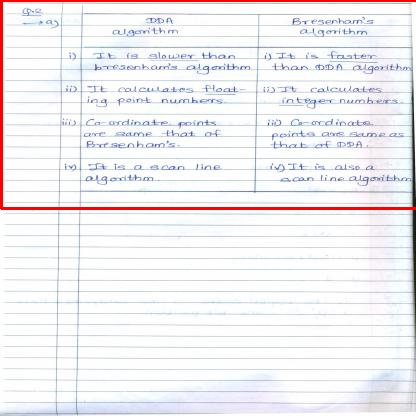 Q.2
→ a) DDA algorithm | Bresenham's algorithm
i) It is slower than bresenham's algorithm | i) It is faster than DDA algorithm
ii) It calculates float-ing point numbers. | ii) It calculates integer numbers.
iii) Co-ordinate points are same that of Bresenham's. | iii) Co-ordinate points are same as that of DDA.
iv) It is a scan line algorithm. | iv) It is also a scan line algorithm